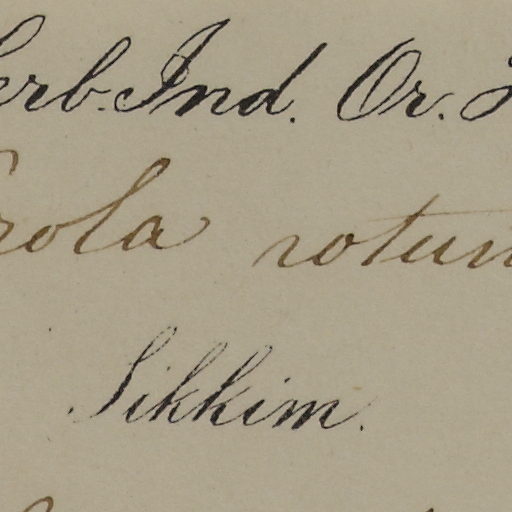 erb. Ind. Or. H
rola rotun
Sikkim.